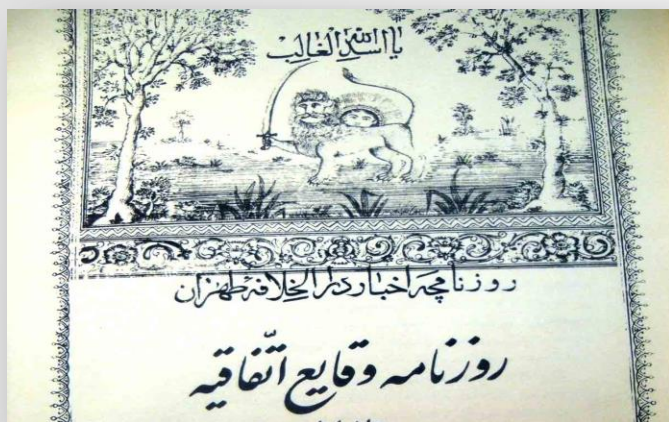 یا اسد الله الغالب
روزنامچه اخبار دارالخلافه طهران
روزنامه وقایع اتّفاقیه